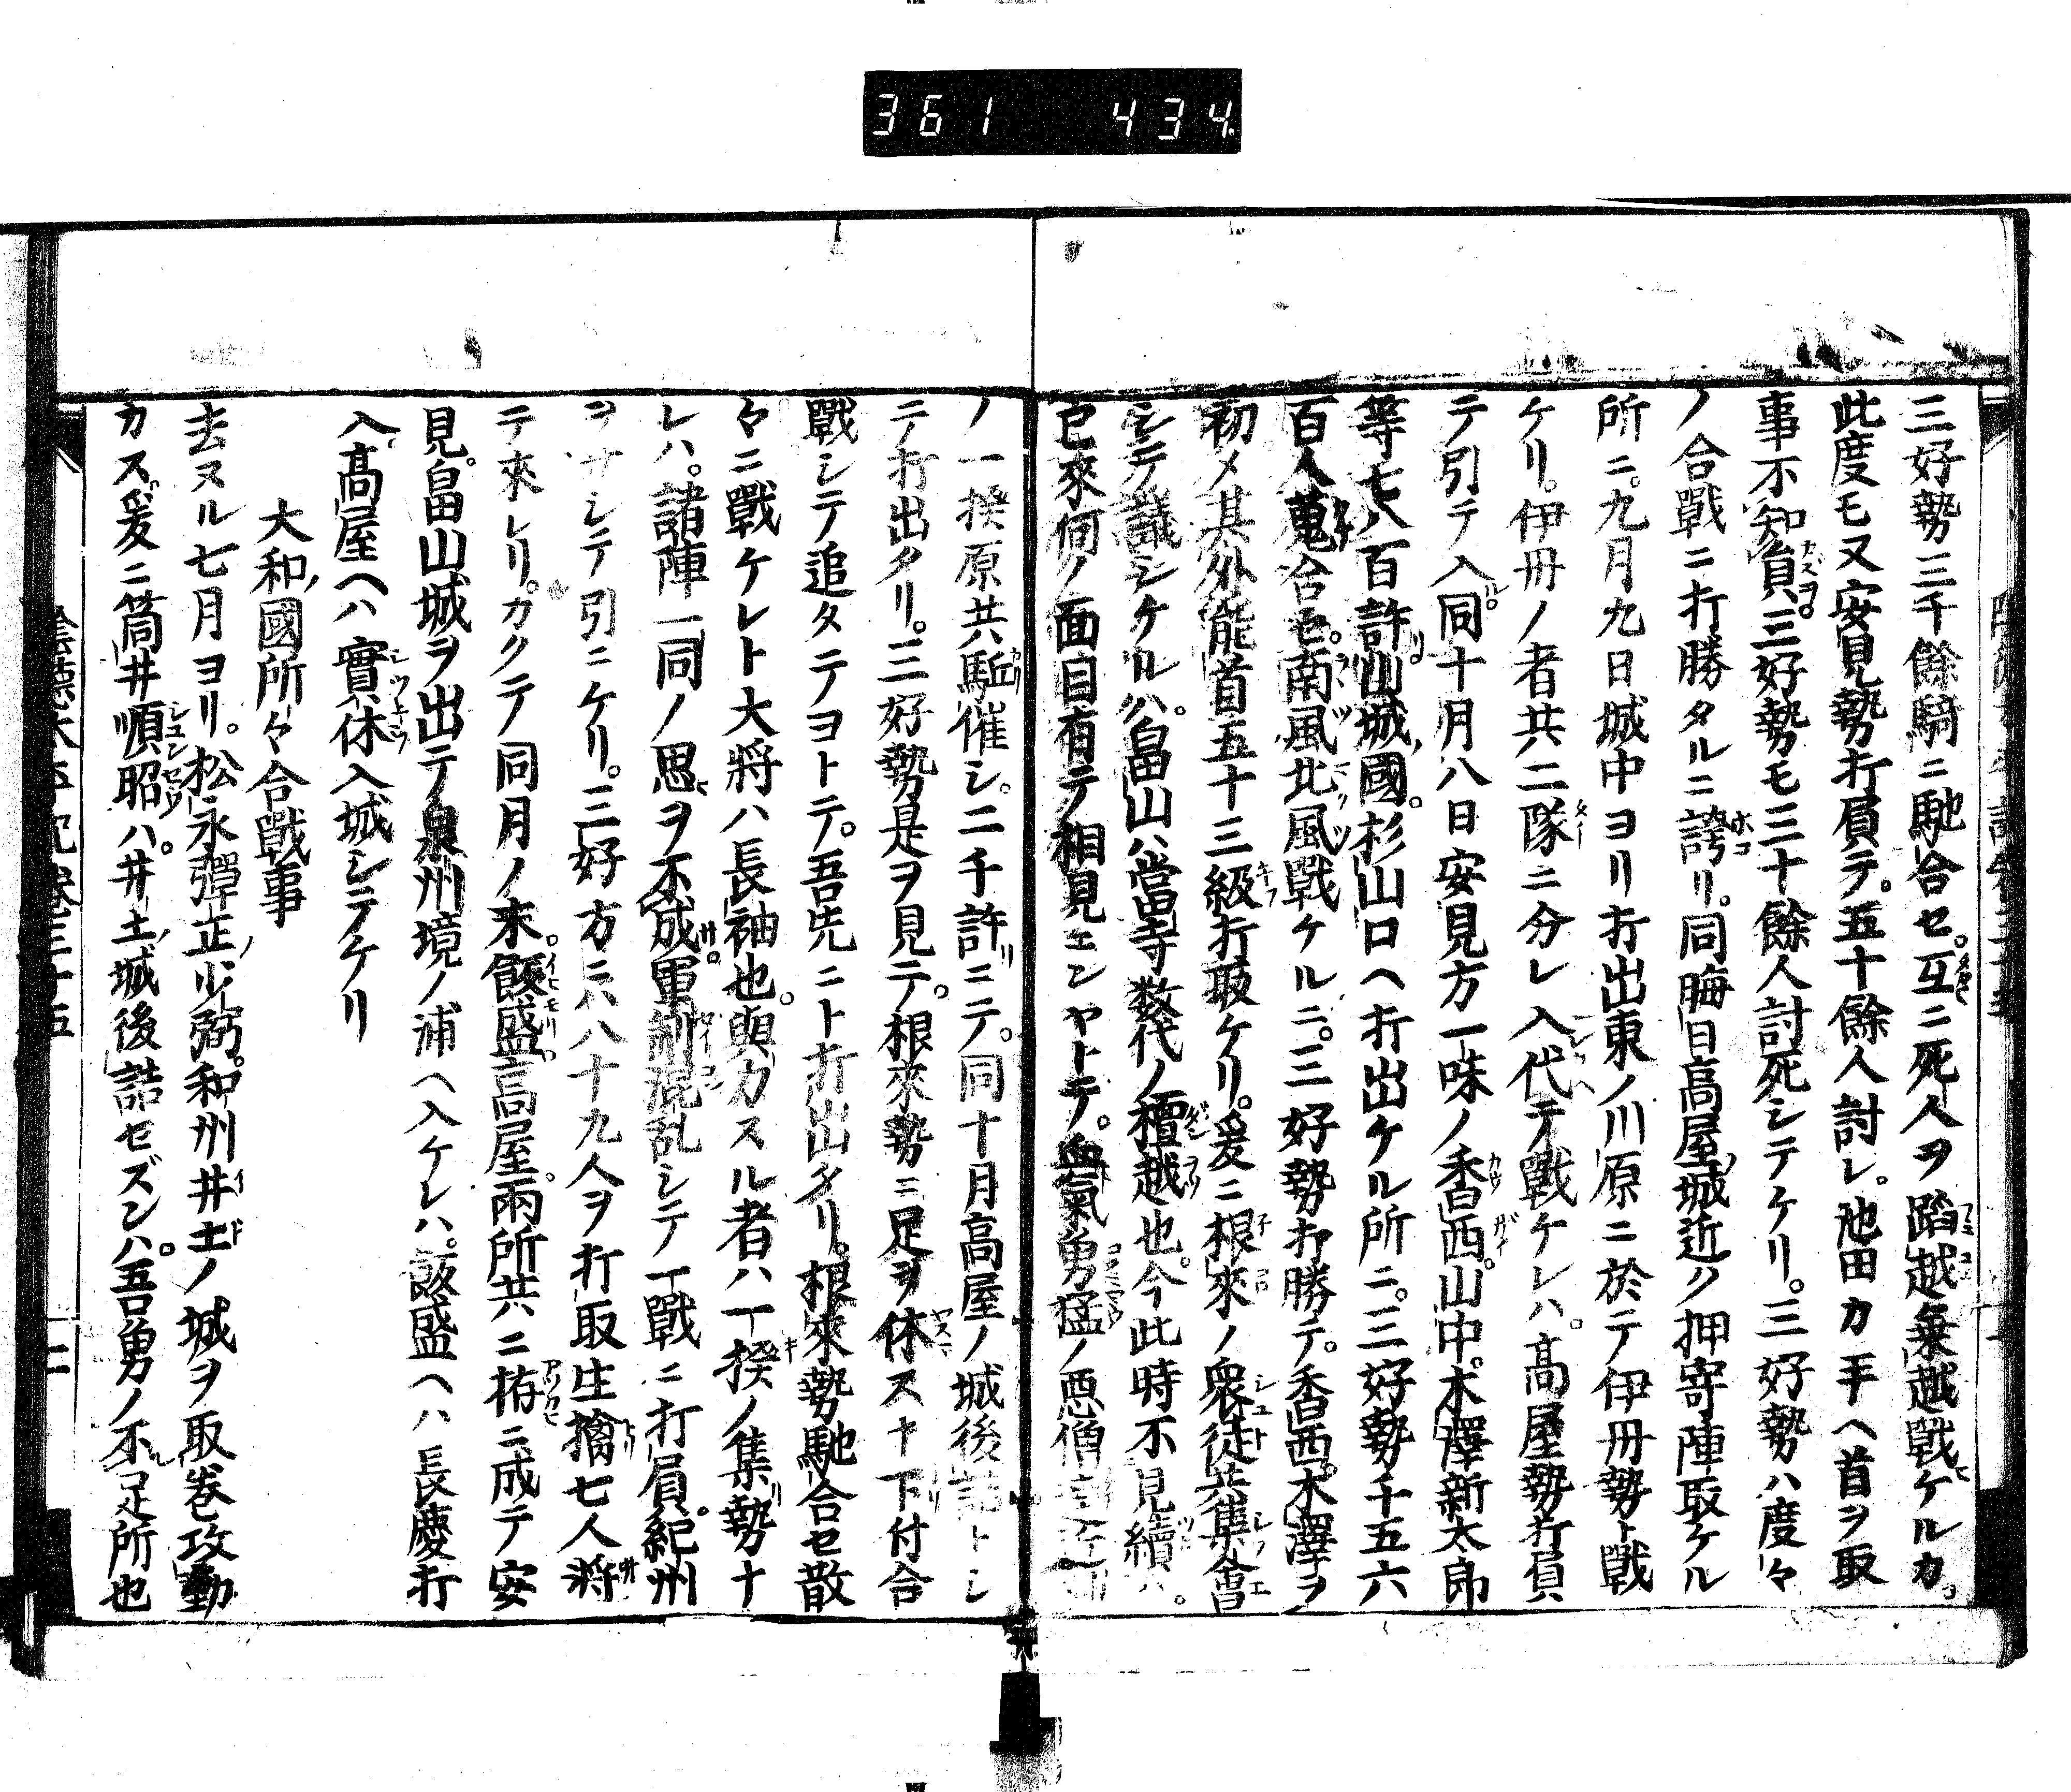 361 434
三好勢三千餘騎ニ馳合セ。互ニ死人ヲ蹈越乗越戰ケルカ。
此度モ又安見勢打負テ。五十餘人討レ。池田カ手ヘ首ヲ取
事不知員。三好勢モ三十餘人討死シテケリ。三好勢ハ度々
ノ合戰ニ打勝タルニ誇リ。同晦日高屋城近ク押寄陣取ケル
所ニ。九月九日城中ヨリ打出東ノ川原ニ於テ伊丹勢ト戰
ケリ。伊丹ノ者共二隊ニ分レ入代テ戰ケレハ。高屋勢打負
テ引テ入。同十月八日安見方一味ノ香西。山中。木澤新太郎
等七八百許山城國。杉山口ヘ打出ケル所ニ。三好勢千五六
百人蒐合セ。南風北風戰ケルニ。三好勢打勝テ。香西。木澤ヲ
初メ其外能首五十三級打取ケリ。爰ニ根來ノ衆徒共集會
シテ議シケルハ。畠山ハ當寺數代ノ檀越也。今此時不見續ハ。
已來何ノ面目有テ相見エンヤトテ。血氣勇猛ノ悪僧
ノ一揆原共駈催シ。二千許ニテ。同十月高屋ノ城後詰トシ
テ打出タリ。三好勢是ヲ見テ。根來勢ニ足ヲ休スナ下付合
戰シテ追タテヨトテ。吾先ニト打出タリ。根來勢馳合セ散
々ニ戰ケレト大將ハ長袖也。與力スル者ハ一揆ノ集勢ナ
レハ。諸陣一同ノ思ヲ不成。軍制混乱シテ一戰ニ打負。紀州
ヲサシテ引ニケリ。三好方ニハ八十九人ヲ打取生擒七人將
テ來レリ。カクテ同月ノ末。飯盛。高屋。兩所共ニ拵ニ成テ安
見。畠山城ヲ出テ泉州境ノ浦ヘ入ケレハ。飯盛ヘハ長慶打
入。高屋ヘハ實休入城シテケリ
大和國所々合戰事
去ヌル七月ヨリ。松永彈正少弼。和州井土ノ城ヲ取巻攻動
カス。爰ニ筒井順昭ハ。井土城後詰セズンハ。吾勇ノ不足所也